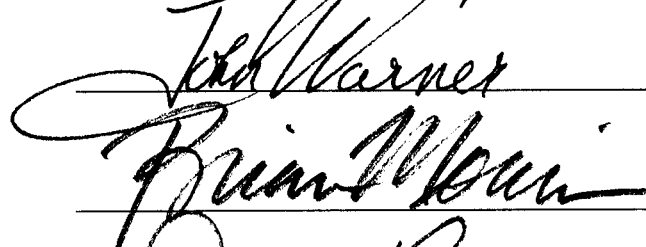 John Warner
Brian Morin